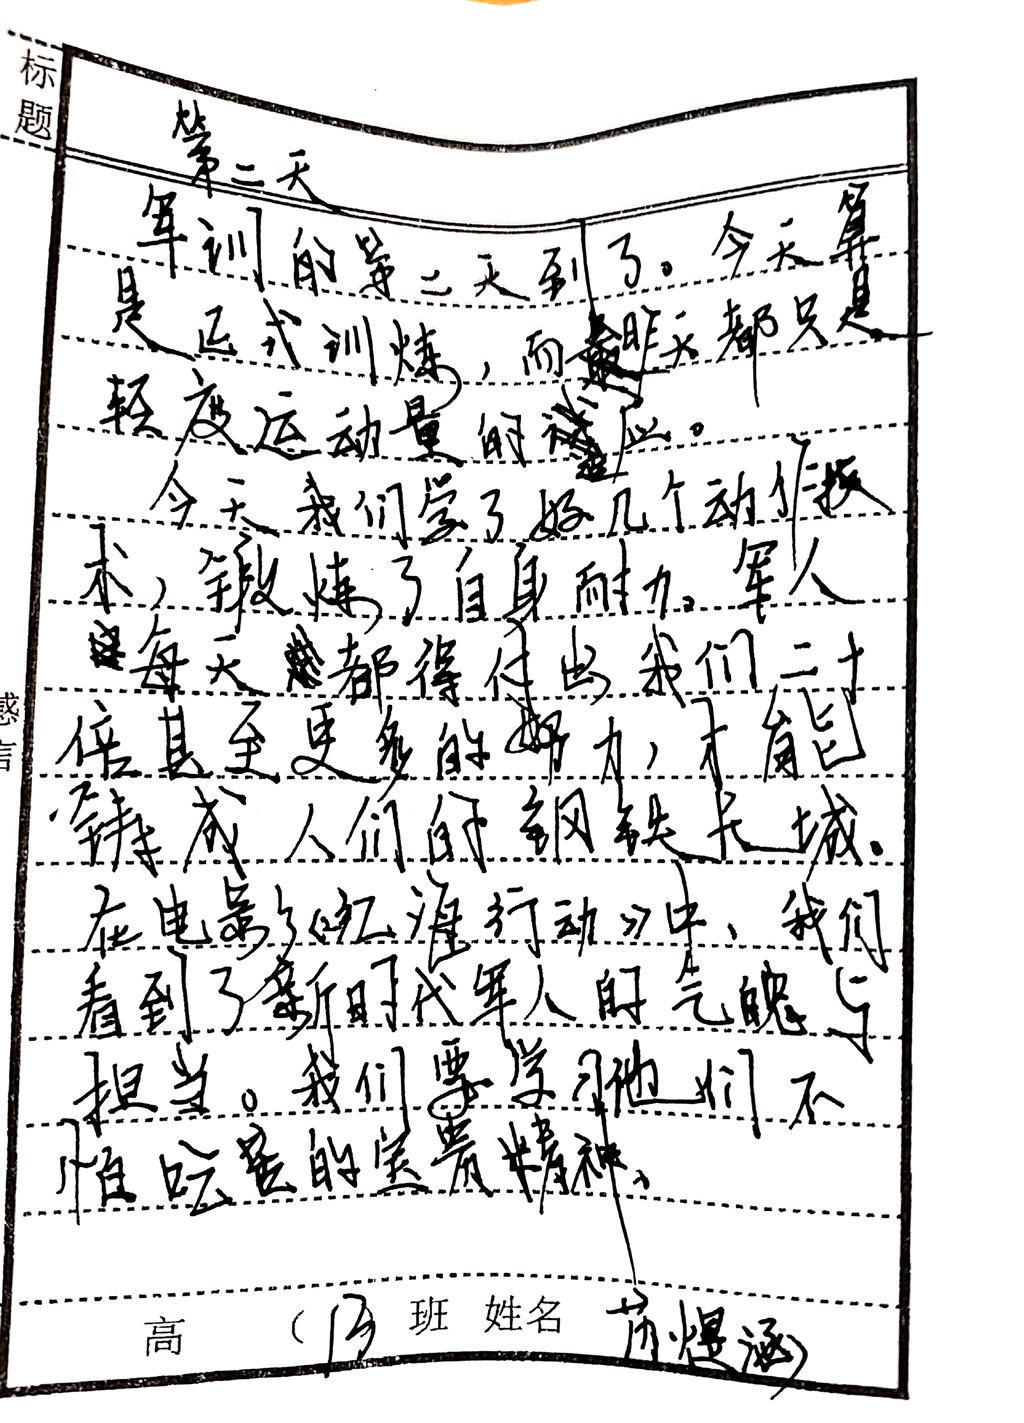 标题
第二天
军训的第二天到了。今天算
是正式训练，而昨天都只是
轻度运动量的适应。
今天我们学了好几个动作技
术，锻炼了自身耐力。军人
每天都得付出我们二十
倍甚至更多的努力，才能
铸成人们的钢铁长城。
在电影《红海行动》中，我们
看到了新时代军人的气魄与
担当。我们要学习他们不
怕吃苦的宝贵精神。
感言
高（13）班 姓名